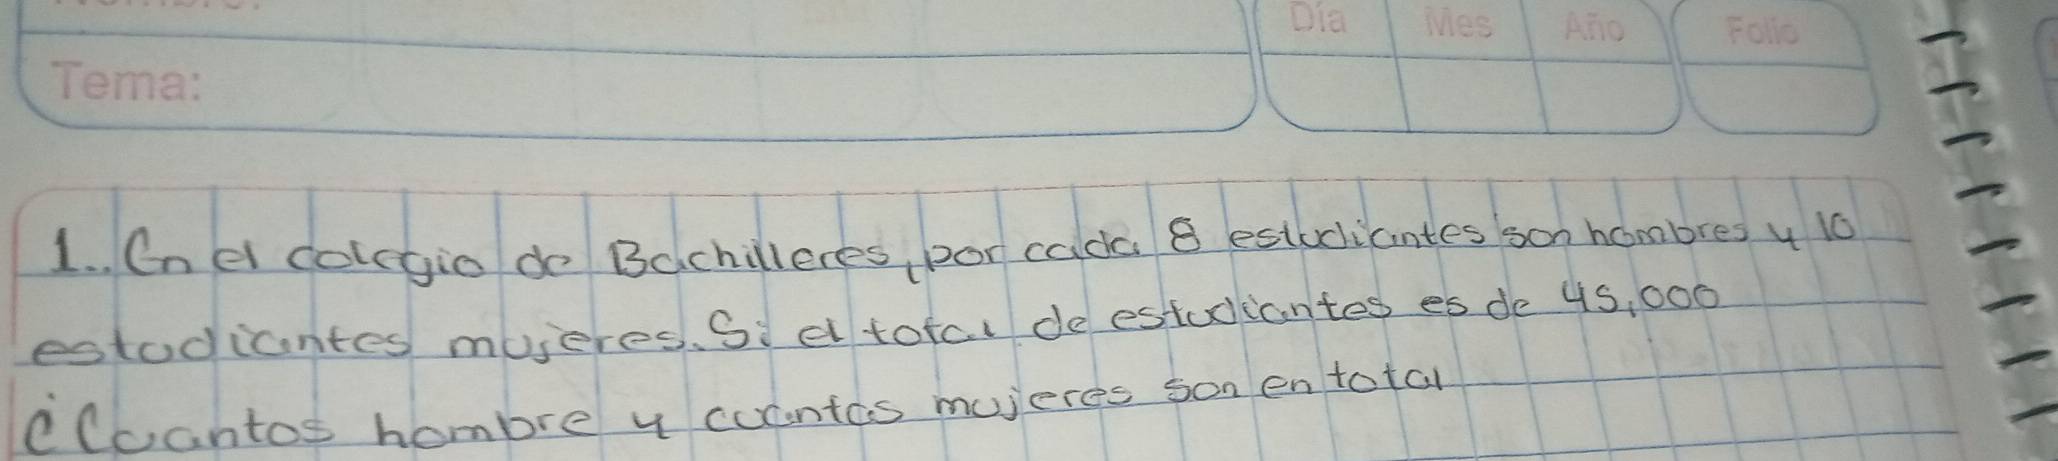 Día Mes Año Folio
Tema:
1.. En el colegio de Bachilleres, por cada 8 estudiantes son hombres y 10
estudiantes mujeres. Si el total de estudiantes es de 45,000
¿Cuantos hombre y cuantas mujeres son en total